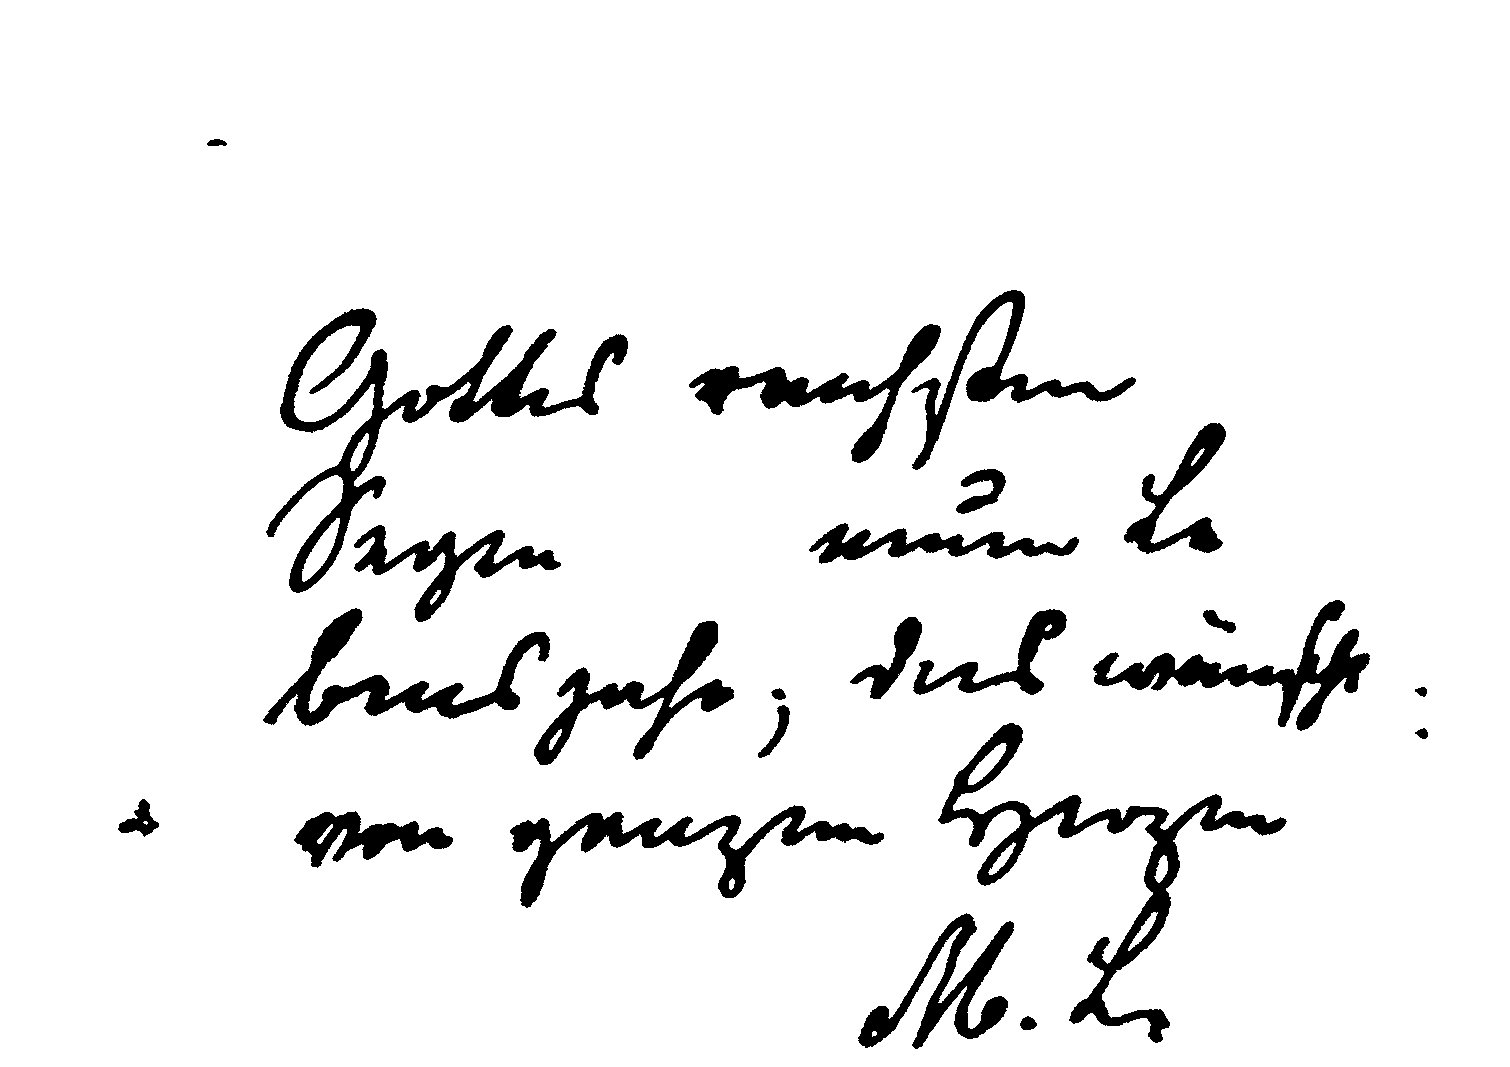 Gottes reichsten
Segen neuen Le
bensjahr; dies wünscht
von ganzem Herzen
M. L.